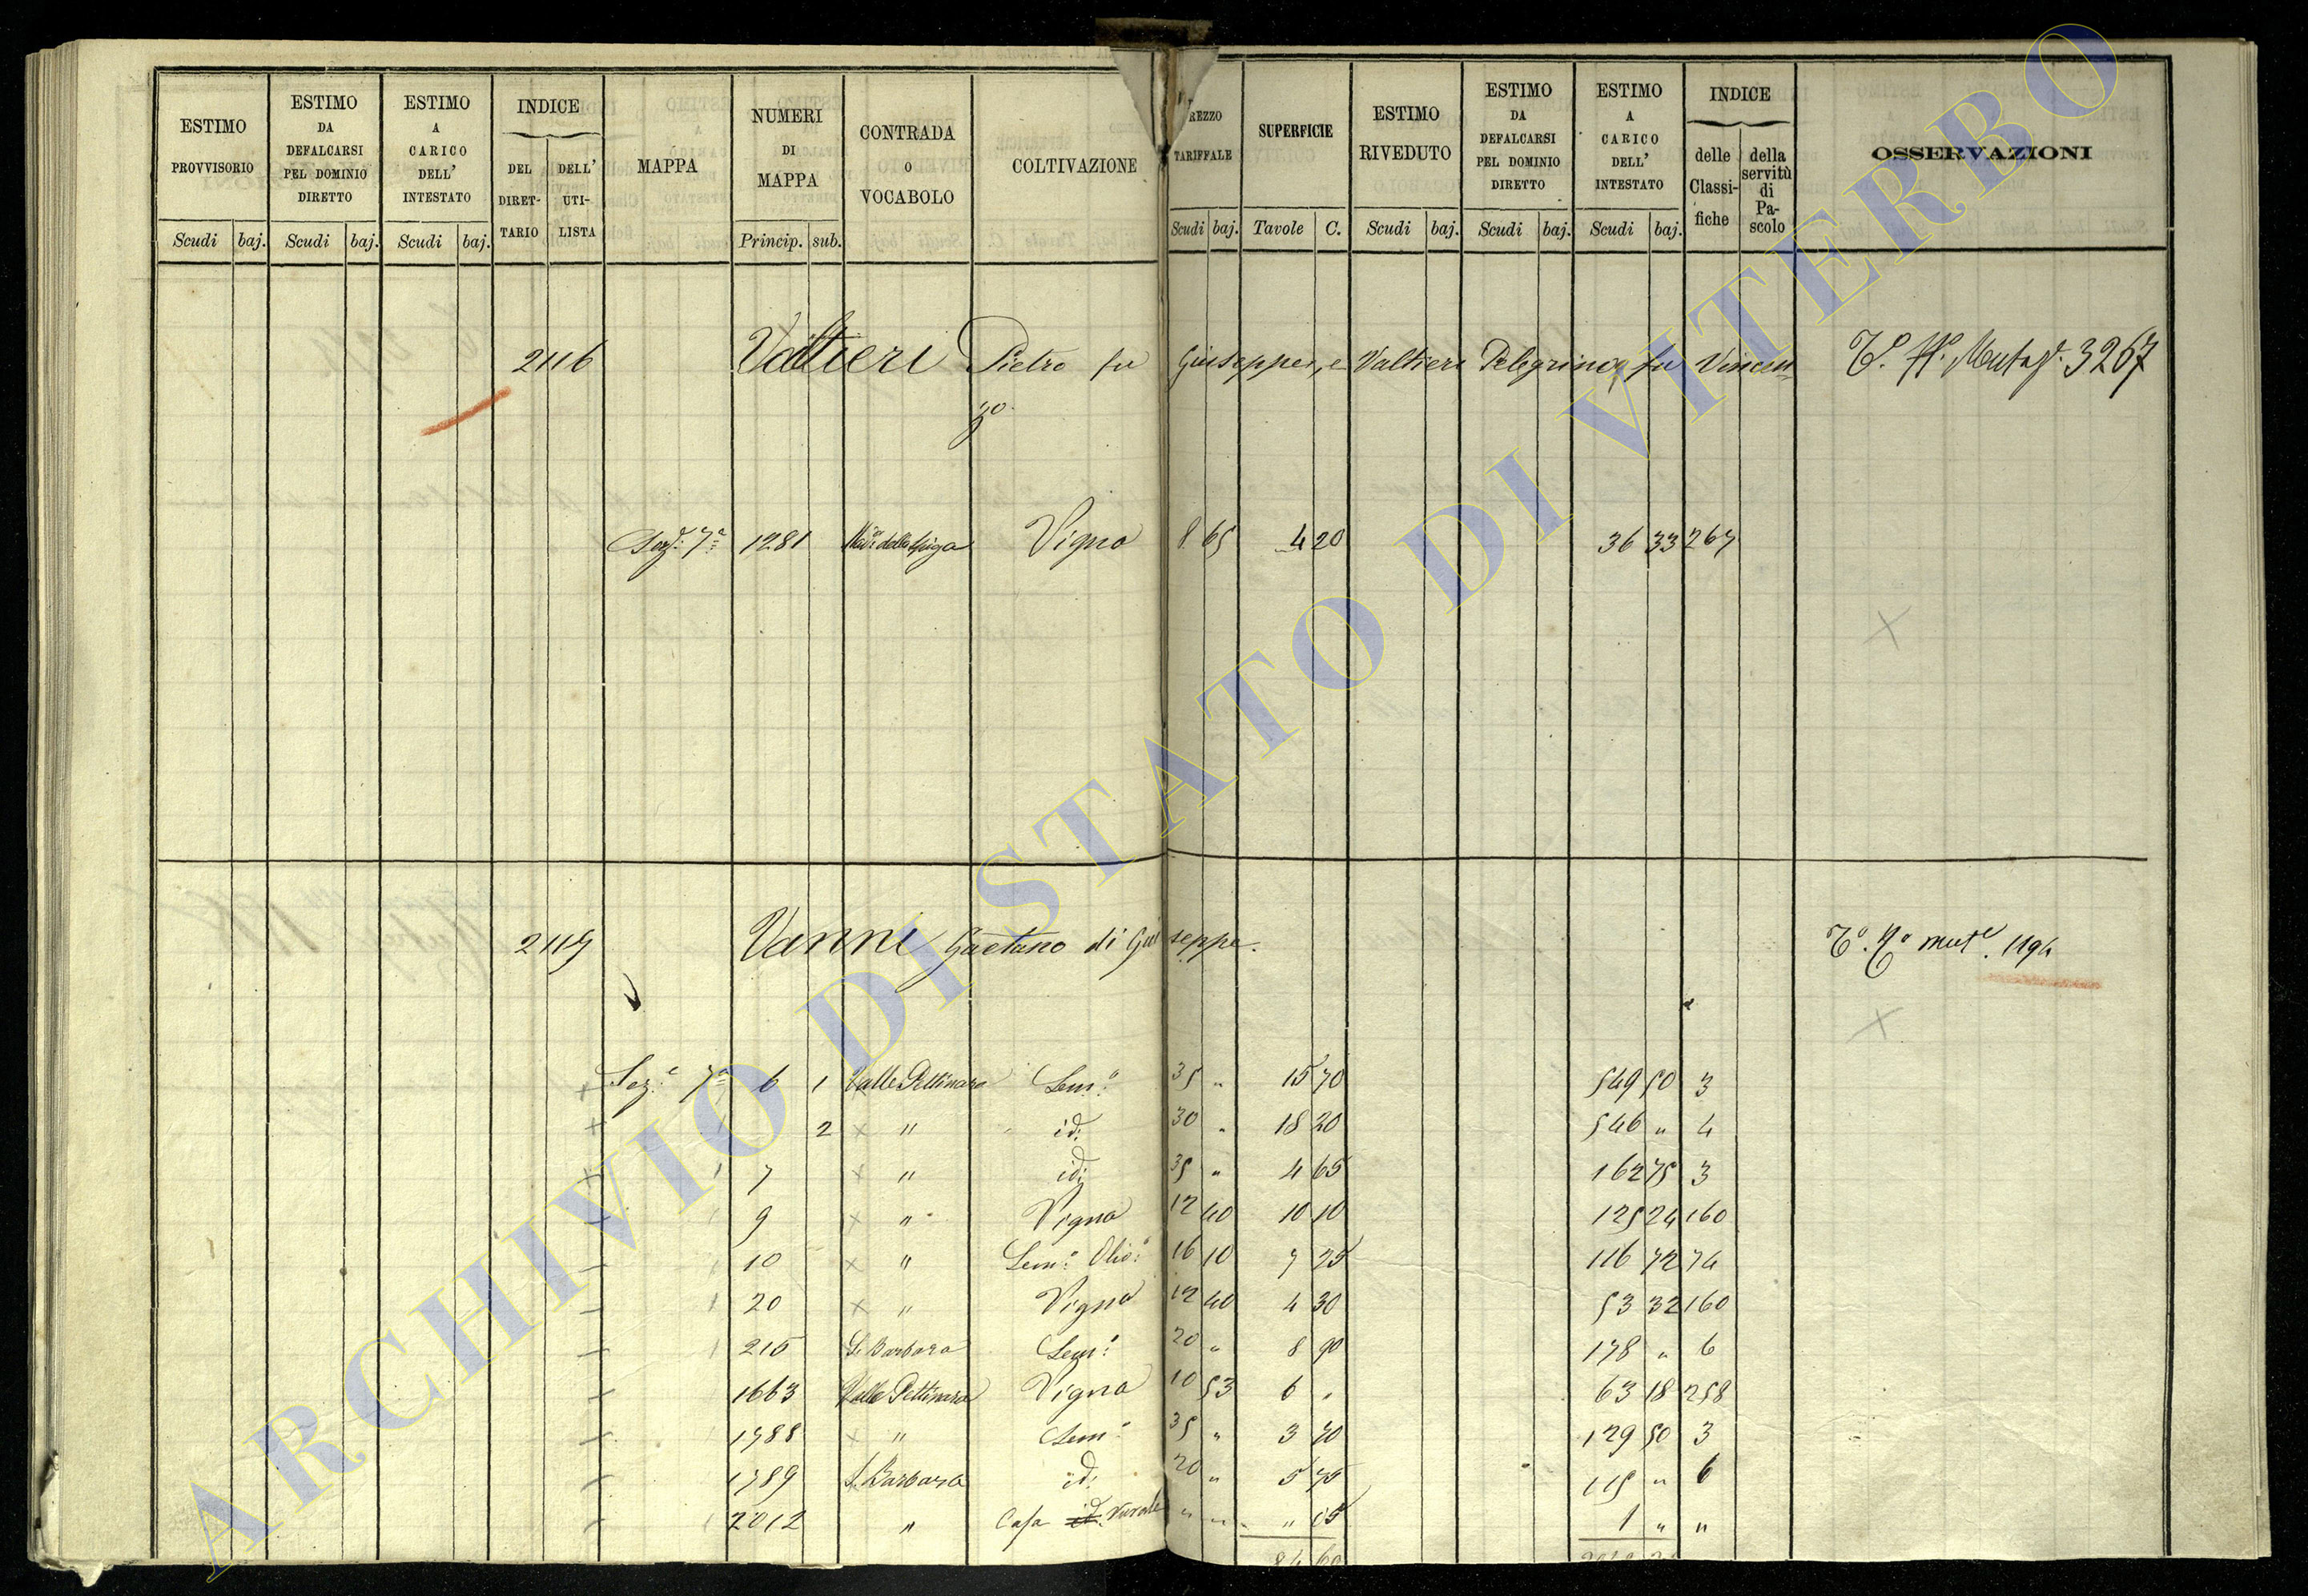 ESTIMO PROVVISORIO
ESTIMO DA DEFALCARSI PEL DOMINIO DIRETTO
ESTIMO A CARICO DELL' INTESTATO
INDICE
DEL DIRET- TARIO
DELL' UTI- LISTA
MAPPA
NUMERI DI MAPPA
CONTRADA O VOCABOLO
COLTIVAZIONE
REZZO TARIFFALE
SUPERFICIE
ESTIMO RIVEDUTO
ESTIMO DA DEFALCARSI PEL DOMINIO DIRETTO
ESTIMO A CARICO DELL' INTESTATO
INDICE
delle Classi- fiche
della servitù di Pa- scolo
OSSERVAZIONI
Scudi baj. Scudi baj. Scudi baj. Princip. sub. Scudi baj. Tavole C. Scudi baj. Scudi baj. Scudi baj.
2116 Valtieri Pietro fu Giuseppe, e Valtieri Pelegrino, fu Vincen 3267
zo.
Sezᵉ 7ª 1281 Vigna 8 65 4 20 36 33 267
2119 Vanni Gaetano di Giuseppe. 1194
Sezᵉ 7ª 6 1 Valle Pettinara Semᵒ 35 " 15 70 549 50 3
2 " id: 30 " 18 20 546 " 4
7 " id: 35 " 4 65 162 75 3
9 " Vigna 12 40 10 10 125 24 160
10 " Semᵒ Olivᵒ 16 10 7 25 116 72 74
20 " Vigna 12 40 4 30 53 32 160
215 S. Barbara Semᵒ 20 " 8 90 178 " 6
1663 Valle Pettinara Vigna 10 53 6 " 63 18 258
1788 " Semᵒ 35 " 3 70 129 50 3
1789 S. Barbara id: 20 " 5 75 115 " 6
2012 " Casa id. rurale " " " 15 1 " "
84 60
ARCHIVIO DI STATO DI VITERBO